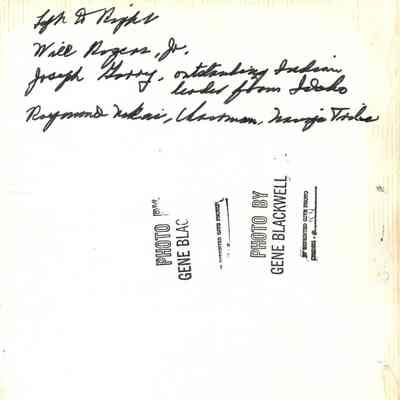 Left to Right
Will Rogers, Jr.
Joseph Garry, outstanding Indian
leader from Idaho
Raymond Nakai, Chairman, Navajo Tribe
PHOTO BY
GENE BLAC
PHOTO BY
GENE BLACKWELL